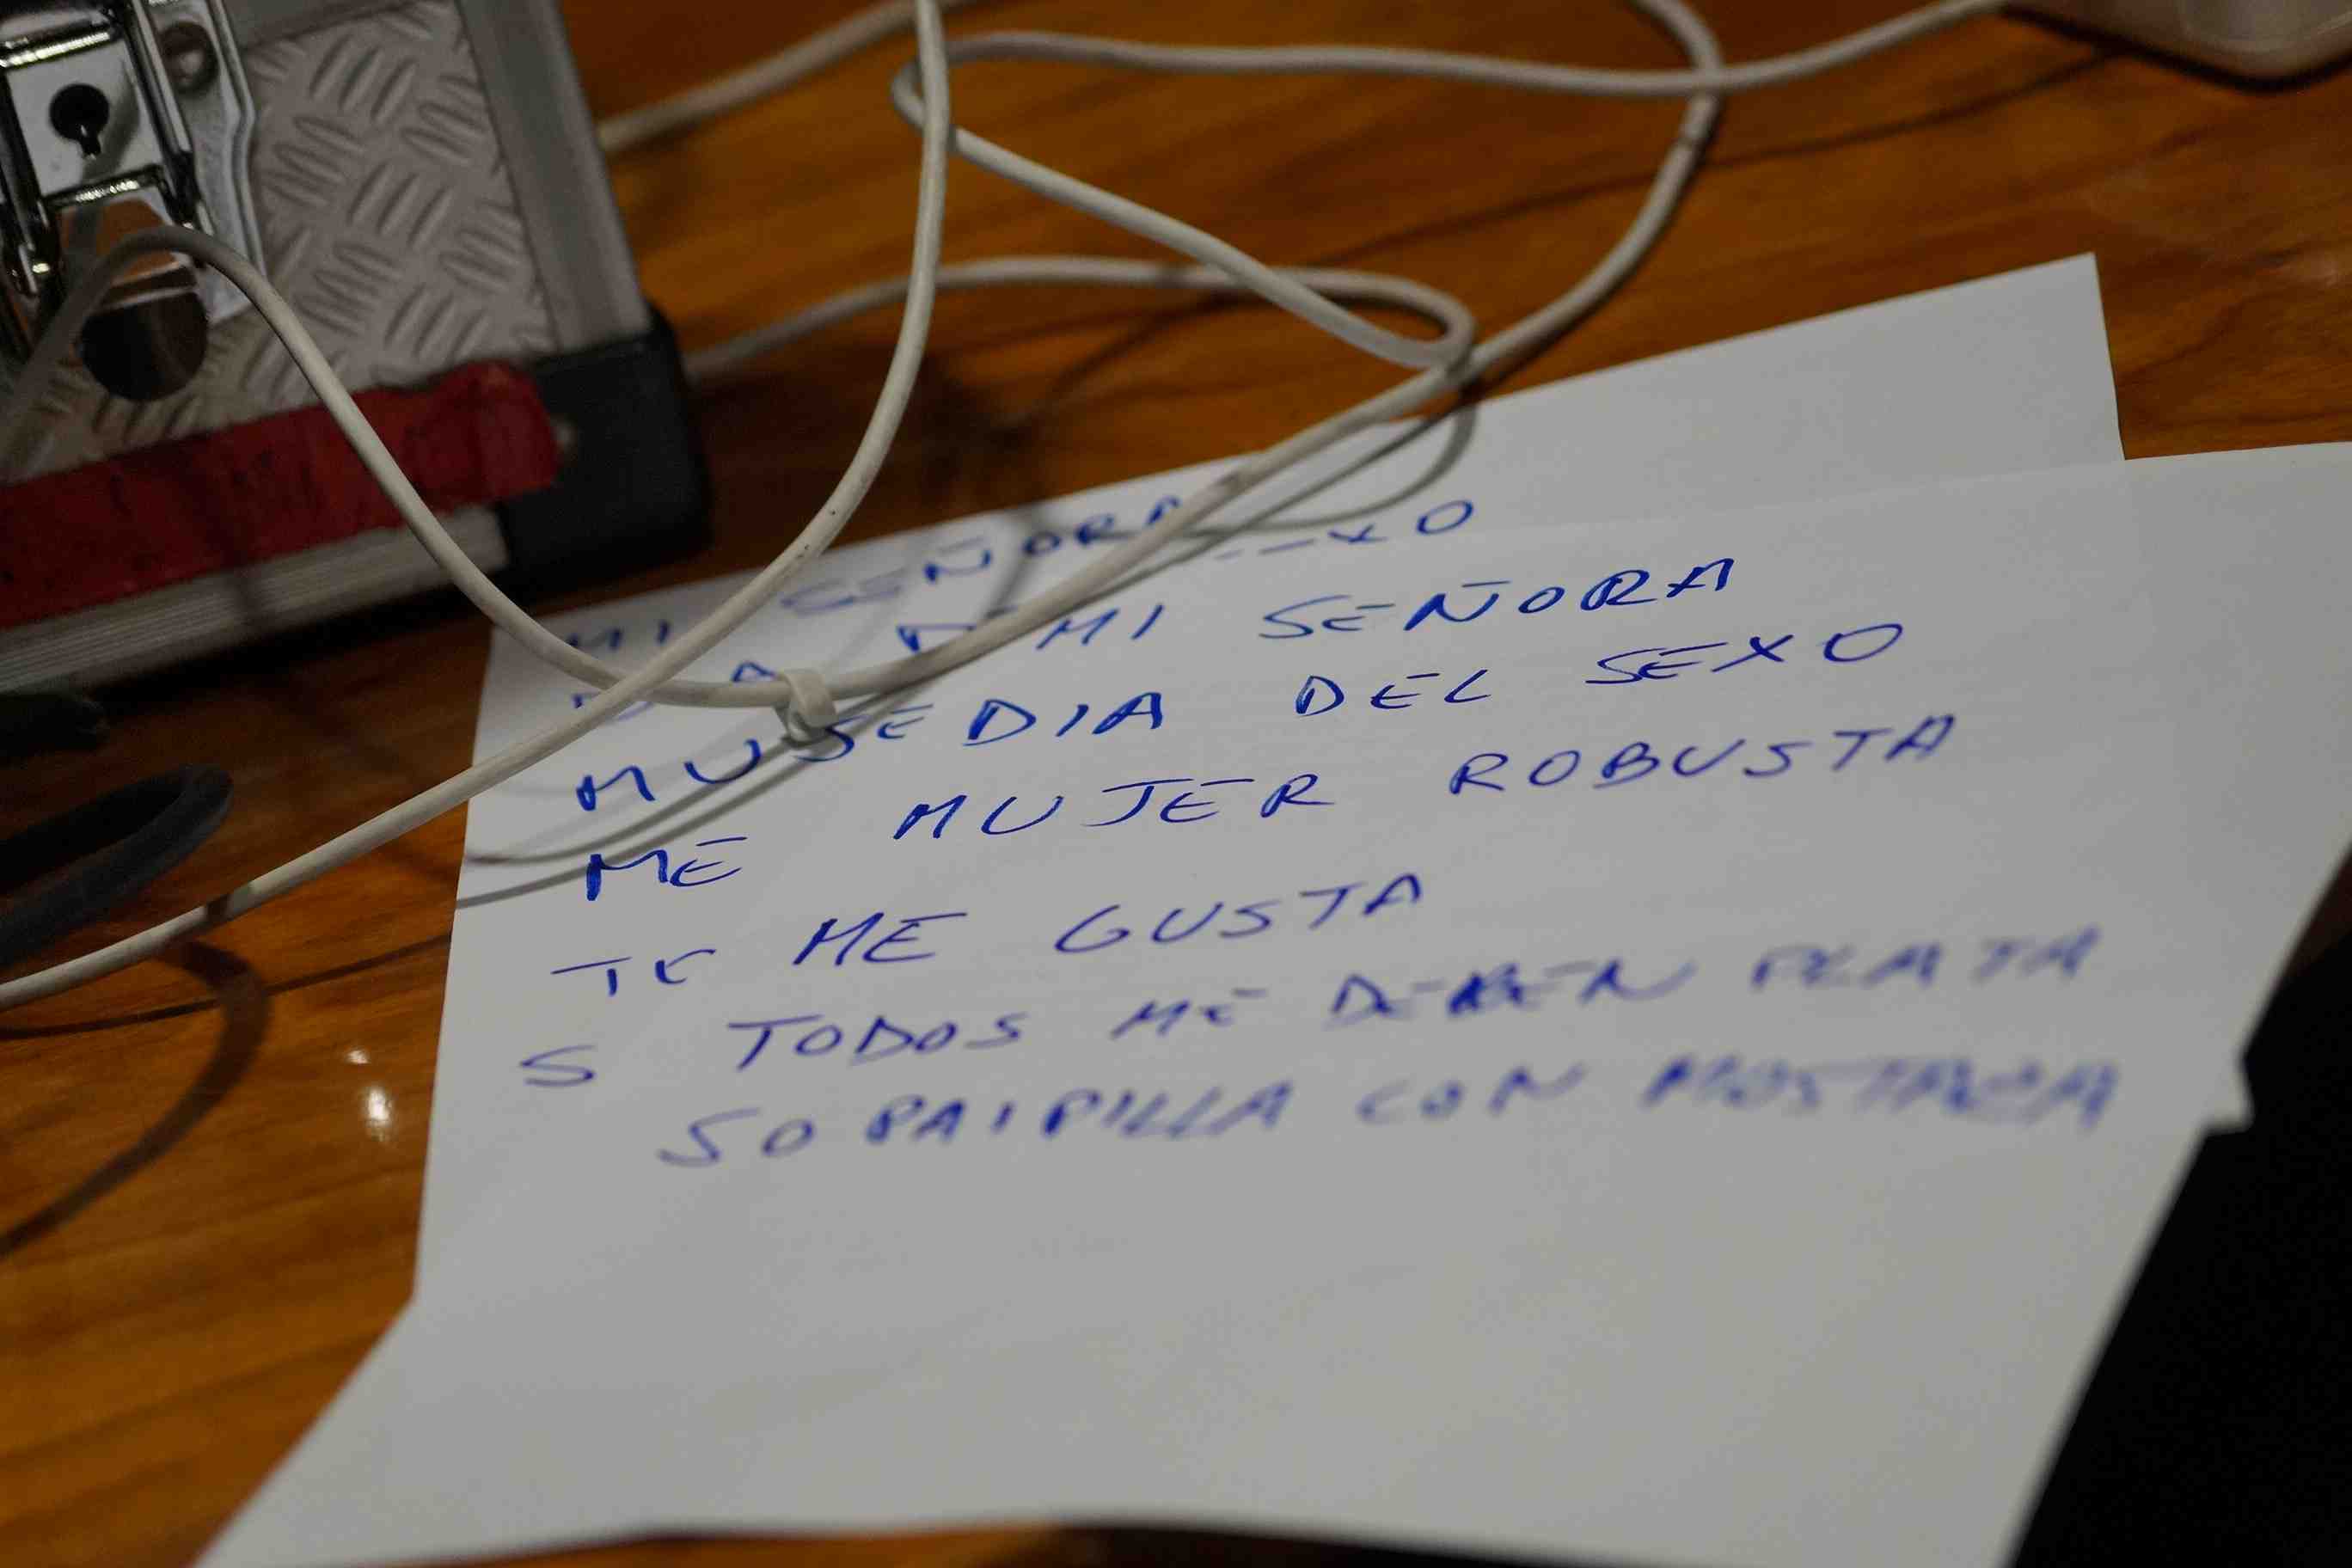 MI SEÑORA
MI SEÑORA
MUSEDIA DEL SEXO
ME MUJER ROBUSTA
TE ME GUSTA
S TODOS ME DEBEN PLATA
SOPAIPILLA CON MOSTAZA